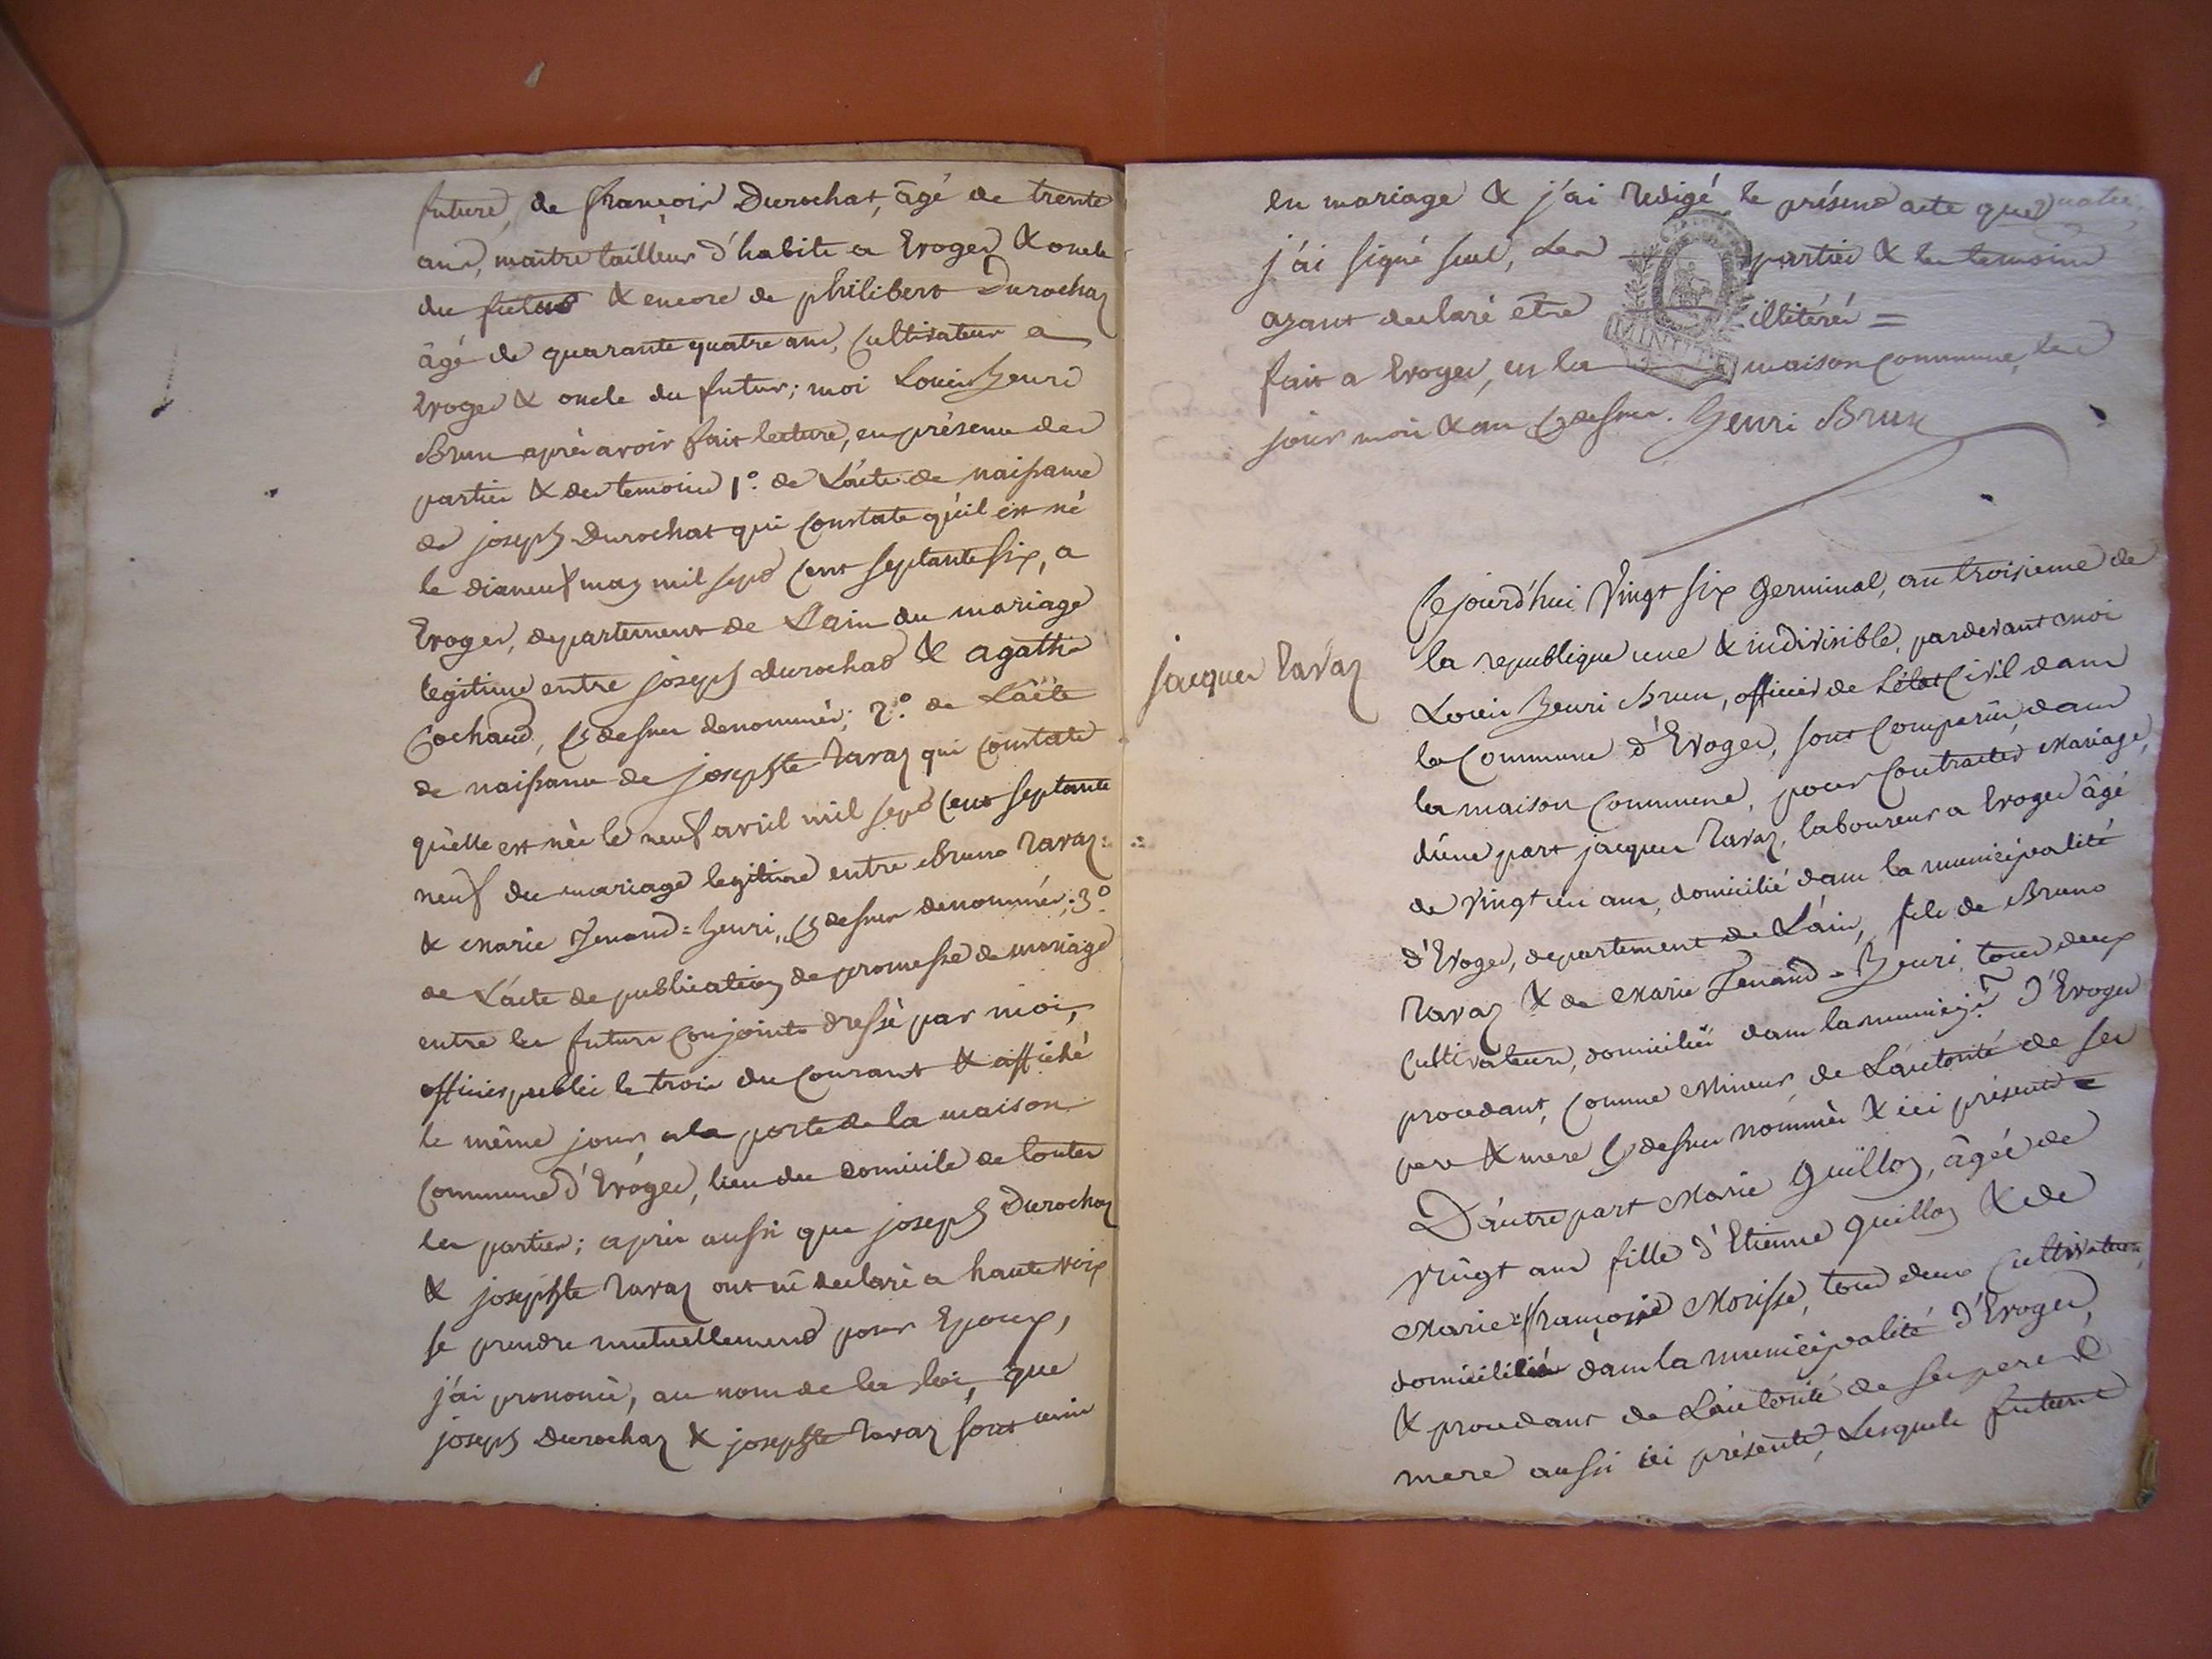 future, de françois Durochat, âgé de trente
ans, maitre tailleur d'habits a Evoges & oncle
du futur & encore de philibert Durochaz
âgé de quarante quatre ans, Cultivateur a
Evoges & oncle du futur; moi Louis Henri
Brun après avoir fait lecture, en présence des
parties & des temoins 1.° de L'acte de naissance
de joseph Durochat qui Constate qu'il est né
le dixneuf may mil sept Cent septante six, a
Evoges, departement de L'ain du mariage
legitime entre joseph Durochat & agathe
Cochand, Cydessus denommés; 2.° de L'acte
de naissance de josephte Ravaz qui Constate
qu'elle est née le neuf avril mil sept Cent septante
neuf du mariage legitime entre Bruno Ravaz
& Marie Jenand=Henri, Cydessus denommés; 3°
de L'acte de publication de promesse de mariage
entre les futurs Conjoints dressé par moi,
officier public le trois du Courant & affiché
le même jour, a la porte de la maison
Commune d'Evoges, lieu du domicile de toutes
les parties; après aussi que joseph Durochaz
& josephte Ravaz ont eü declaré a haute voix
se prendre mutuellement pour Epoux,
j'ai prononcé, au nom de la loi, que
joseph Durochaz & josephte Ravaz sont unis
en mariage & j'ai redigé le présent acte que
j'ai signé seul, les parties & les temoins
ayant declaré etre illitérés =
MINUTE
fait a Evoges, en la maison Commune, les
jour mois & an Cydessus. Henri Brun
jacques Ravaz
Cejourd'hui Vingt six Germinal, an troisieme de
la republique une & indivisible, pardevant moi
Louis Henri Brun, officier de L'état Civil dans
la Commune d'Evoges, sont Comparûs dans
la maison Commune, pour Contracter Mariage,
d'une part jacques Ravaz, laboureur a Evoges âgé
de Vingt un ans, domicilié dans la municipalité
d'Evoges, departement de L'ain, fils de Bruno
Ravaz & de Marie Jenand=Henri, tous deux
Cultivateurs, domiciliés dans la municip.té d'Evoges
procedant, Comme Mineur, de L'autorité de ses
pere & mere Cydessus nommés & ici présents =
D'autre part Marie Guilloz, âgée de
Vingt ans fille d'Etienne Guilloz & de
Marie françoise Morisse, tous deux Cultivateurs,
domiciliés dans la municipalité d'Evoges,
& procedant de L'autorité de ses pere &
mere aussi ici présents, Lesquels futurs